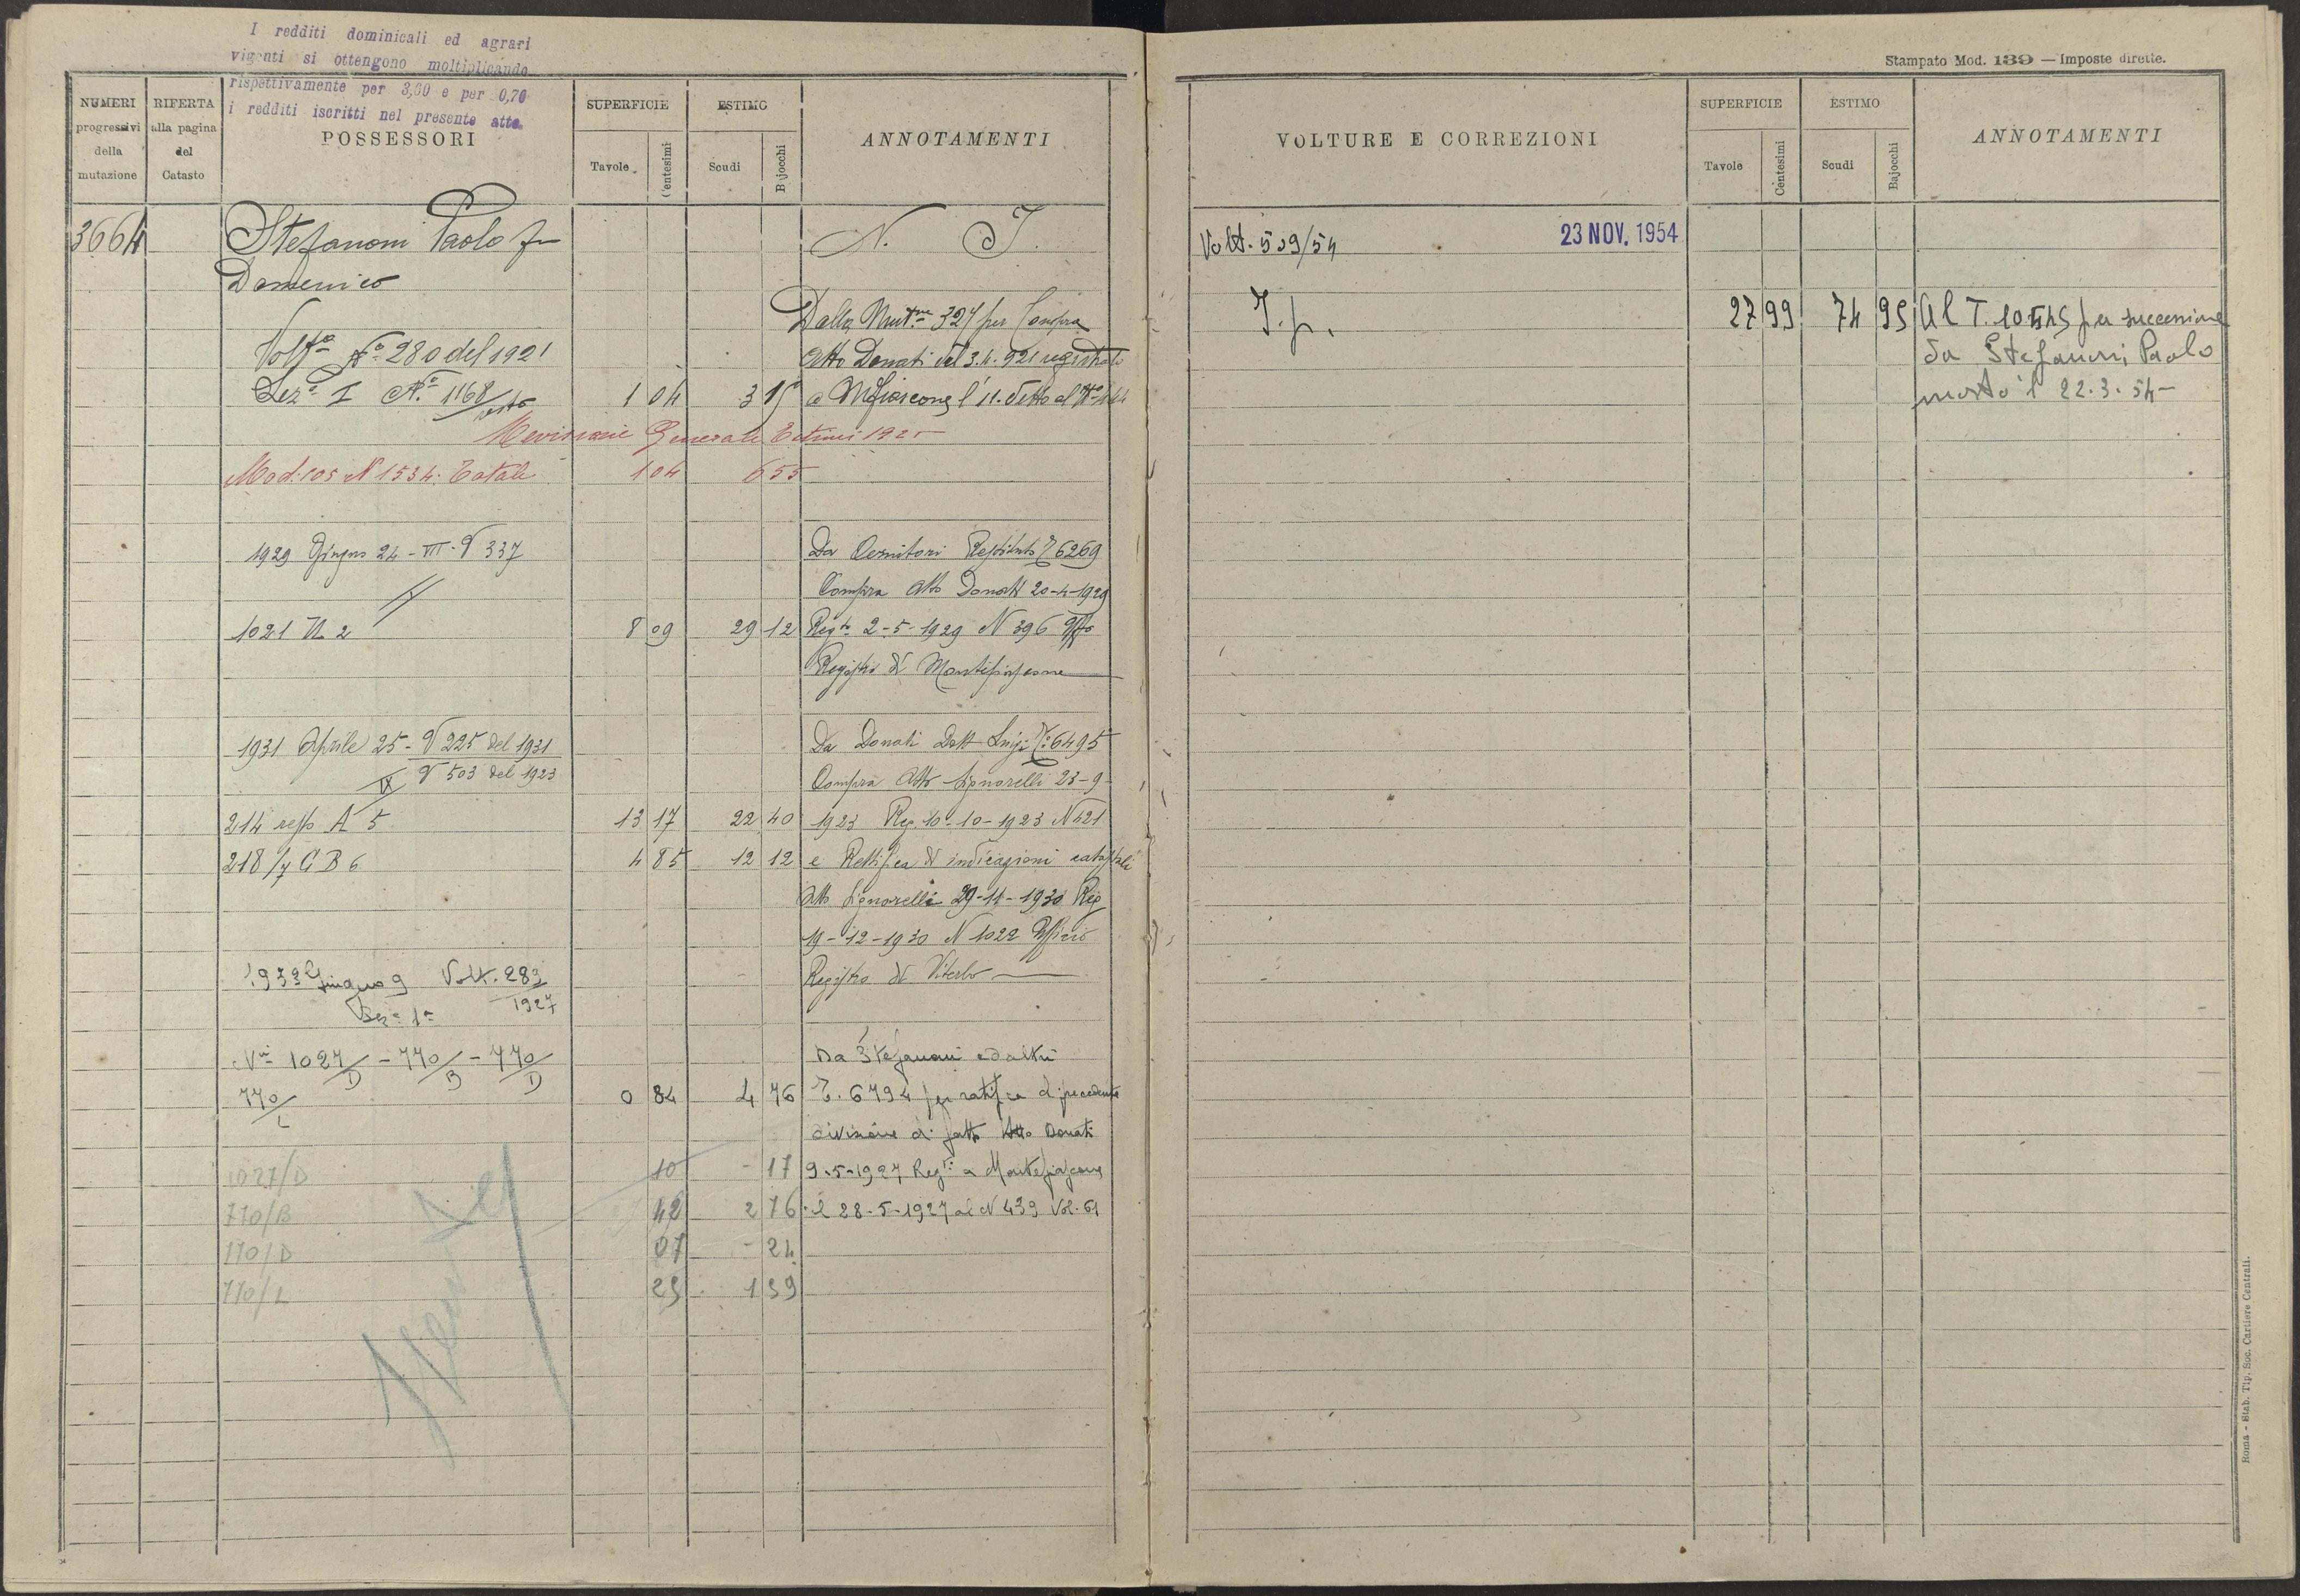 I redditi dominicali ed agrari
vigenti si ottengono moltiplicando
rispettivamente per 3,60 e per 0,70
i redditi iscritti nel presente atto.
NUMERI progressivi della mutazione
RIFERTA alla pagina del Catasto
POSSESSORI
SUPERFICIE
Tavole
Centesimi
ESTIMO
Scudi
Bajocchi
ANNOTAMENTI
3664 Stefanoni Paolo fu N. I.
Domenico
Dalla Mut.ne 327 per Compra
Volt.a N.o 280 del 1921 Atto Donati del 3.4.921 registrato
Sez.e I N.o 1168/resto 1 04 3 15 a Mfiascone l'11 detto al N.o
Revisione Generale Estimi 192
Mod. 105 N 1534. Totale 1 04 6 55
1929 Giugno 24 - VII - V 337 Da Cernitori T 6269
Compra Atto Donati 20-4-1929
1021 N 2 8 09 29 12 Reg.to 2-5-1929 N 396 Uffo
Registro di Montefiascone
1931 Aprile 25 - V 225 del 1931 Da Donati Dott Luigi T. 6495
IX V 503 del 1923 Compra Atto Signorelli 23-9-
214 resto A 5 13 17 22 40 1923 Reg. 10-10-1923 N 421
218/7 G B 6 4 85 12 12 e Rettifica di indicazioni catastali
Atto Signorelli 29-11-1930 Reg
19-12-1930 N 1022 Ufficio
Registro di Viterbo
1932 Giugno 9 Volt. 283/1927
Sez.e 1a
N.ri 1027/D - 770/B - 770/D Da Stefanoni ed altri
770/L 0 84 4 76 T. 6794 per ratifica di precedente
divisione di fatto Atto Donati
1027/D 10 - 17 9-5-1927 Reg.to a Montefiascone
770/B 42 2 76 il 28-5-1927 al N 439 Vol. 61
770/D 07 - 24
770/L 25 1 59
Stampato Mod. 139 — Imposte dirette.
VOLTURE E CORREZIONI
SUPERFICIE
Tavole
Centesimi
ESTIMO
Scudi
Bajocchi
ANNOTAMENTI
Volt. 509/54 23 NOV. 1954
I. p. 27 99 74 95 Al T. per successione
da Stefanoni Paolo
morto il 22.3.54
Roma - Stab. Tip. Soc. Cartiere Centrali.